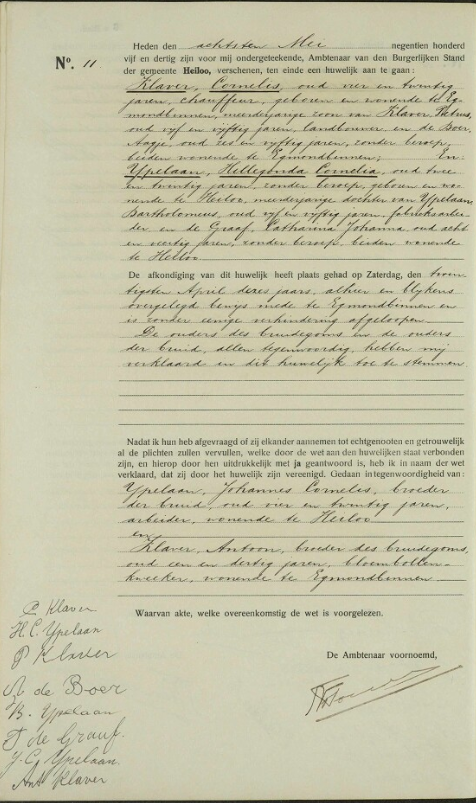 Heden den achtsten Mei negentien honderd
vijf en dertig zijn voor mij ondergeteekende, Ambtenaar van den Burgerlijken Stand
No. 11
der gemeente Heiloo, verschenen, ten einde een huwelijk aan te gaan:
Klaver, Cornelis, oud vier en twintig
jaren, chauffeur, geboren en wonende te Eg-
mondbinnen, meerderjarige zoon van Klaver, Petrus,
oud vyf en vyftig jaren, landbouwer en de Boer,
Aagje, oud zes en vyftig jaren, zonder beroep,
beiden wonende te Egmondbinnen; En
Ypelaan, Hillegonda Cornelia, oud twee
en twintig jaren, zonder beroep, geboren en wo-
nende te Heiloo, meerderjarige dochter van Ypelaan,
Bartholomeus, oud vyf en vyftig jaren, fabrieksarbei-
der en de Graaf, Catharina Johanna, oud acht
en veertig jaren, zonder beroep, beiden wonende
te Heiloo.
De afkondiging van dit huwelijk heeft plaats gehad op Zaterdag, den twin-
tigsten April dezes jaars, alhier en blykens
overgelegd bewys mede te Egmondbinnen en
is zonder eenige verhindering afgeloopen.
De ouders des bruidegoms en de ouders
der bruid, allen tegenwoordig, hebben mij
verklaard en dit huwelijk toe te stemmen.
Nadat ik hun heb afgevraagd of zij elkander aannemen tot echtgenooten en getrouwelijk
al de plichten zullen vervullen, welke door de wet aan den huwelijken staat verbonden
zijn, en hierop door hen uitdrukkelijk met ja geantwoord is, heb ik in naam der wet
verklaard, dat zij door het huwelijk zijn vereenigd. Gedaan in tegenwoordigheid van:
Ypelaan, Johannes Cornelis, broeder
der bruid, oud vier en twintig jaren,
arbeider, wonende te Heiloo
en
Klaver, Antoon, broeder des bruidegoms,
oud een en dertig jaren, bloembollen-
kweeker, wonende te Egmondbinnen.
Waarvan akte, welke overeenkomstig de wet is voorgelezen.
C Klaver
H.C. Ypelaan
P Klaver
De Ambtenaar voornoemd,
A de Boer
B. Ypelaan
J de Graaf
J.C. Ypelaan
Ant Klaver